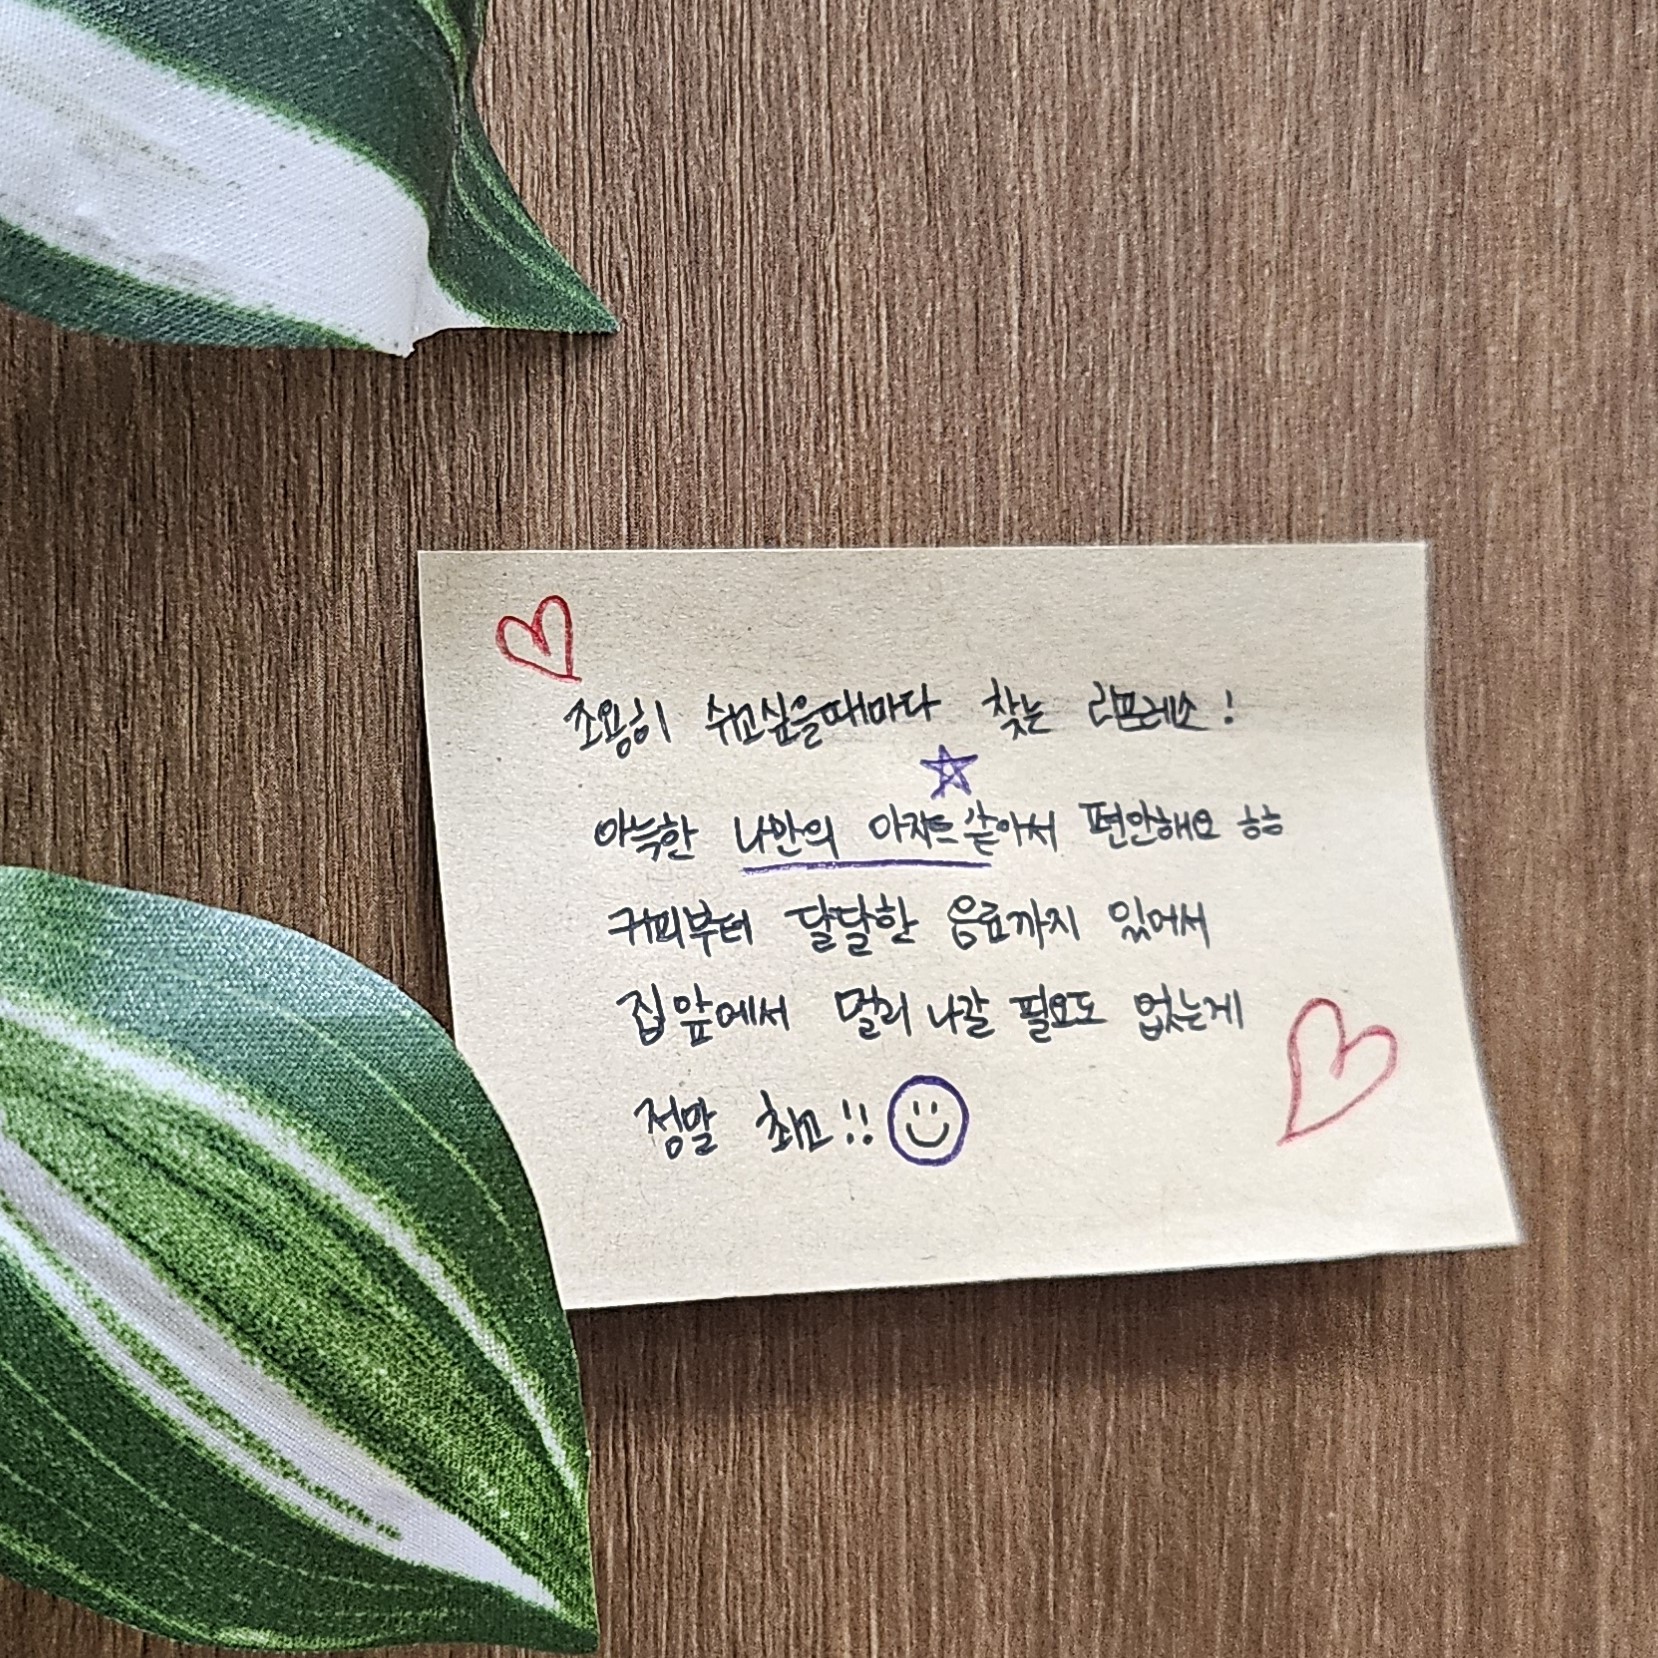 조용히 쉬고싶을때마다 찾는 리프레소!
아늑한 나만의 아지트같아서 편안해요 ㅎㅎ
커피부터 달달한 음료까지 있어서
집앞에서 멀리 나갈 필요도 없는게
정말 최고!!